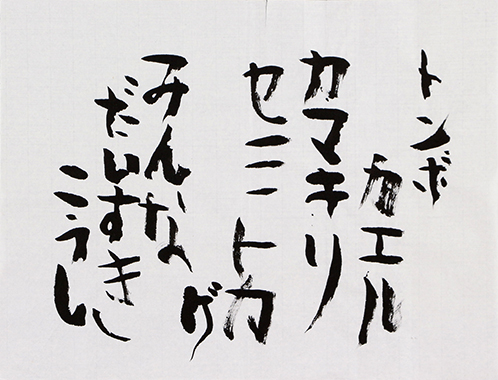 トンボ
カエル
カマキリ
セミ トカ
ゲ
みんな
だいすき
こうし